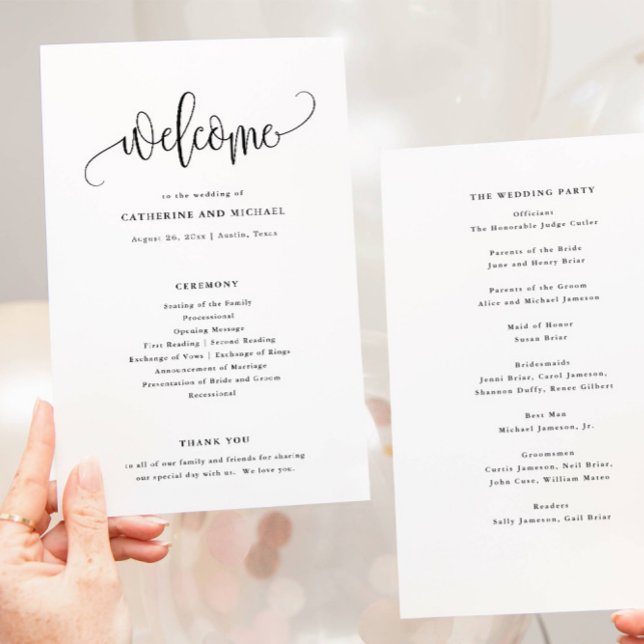 welcome
to the wedding of
CATHERINE AND MICHAEL
August 26, 20xx | Austin, Texas
CEREMONY
Seating of the Family
Processional
Opening Message
First Reading | Second Reading
Exchange of Vows | Exchange of Rings
Announcement of Marriage
Presentation of Bride and Groom
Recessional
THANK YOU
to all of our family and friends for sharing
our special day with us. We love you.
THE WEDDING PARTY
Officians
The Honorable Judge Cutler
Parents of the Bride
June and Henry Briar
Parents of the Groom
Alice and Michael Jameson
Maid of Honor
Susan Briar
Bridesmaids
Jenni Briar, Carol Jameson,
Shannon Duffy, Renee Gilbert
Best Man
Michael Jameson, Jr.
Groomsmen
Curtis Jameson, Neil Briar,
John Cuse, William Mateo
Readers
Sally Jameson, Gail Briar